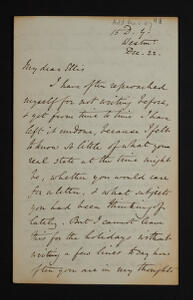 15 D. Y.
Westmr.
Dec. 22.
My dear Ellis
I have often reproached
myself for not writing before,
& yet from time to time I have
left it undone, because I felt
to know so little of what your
real state at the time might
be, whether you would care
for a letter, & what subjects
you had been thinking of
lately. But I cannot leave
this for the holidays without
writing a few lines to say how
often you are in my thoughts.